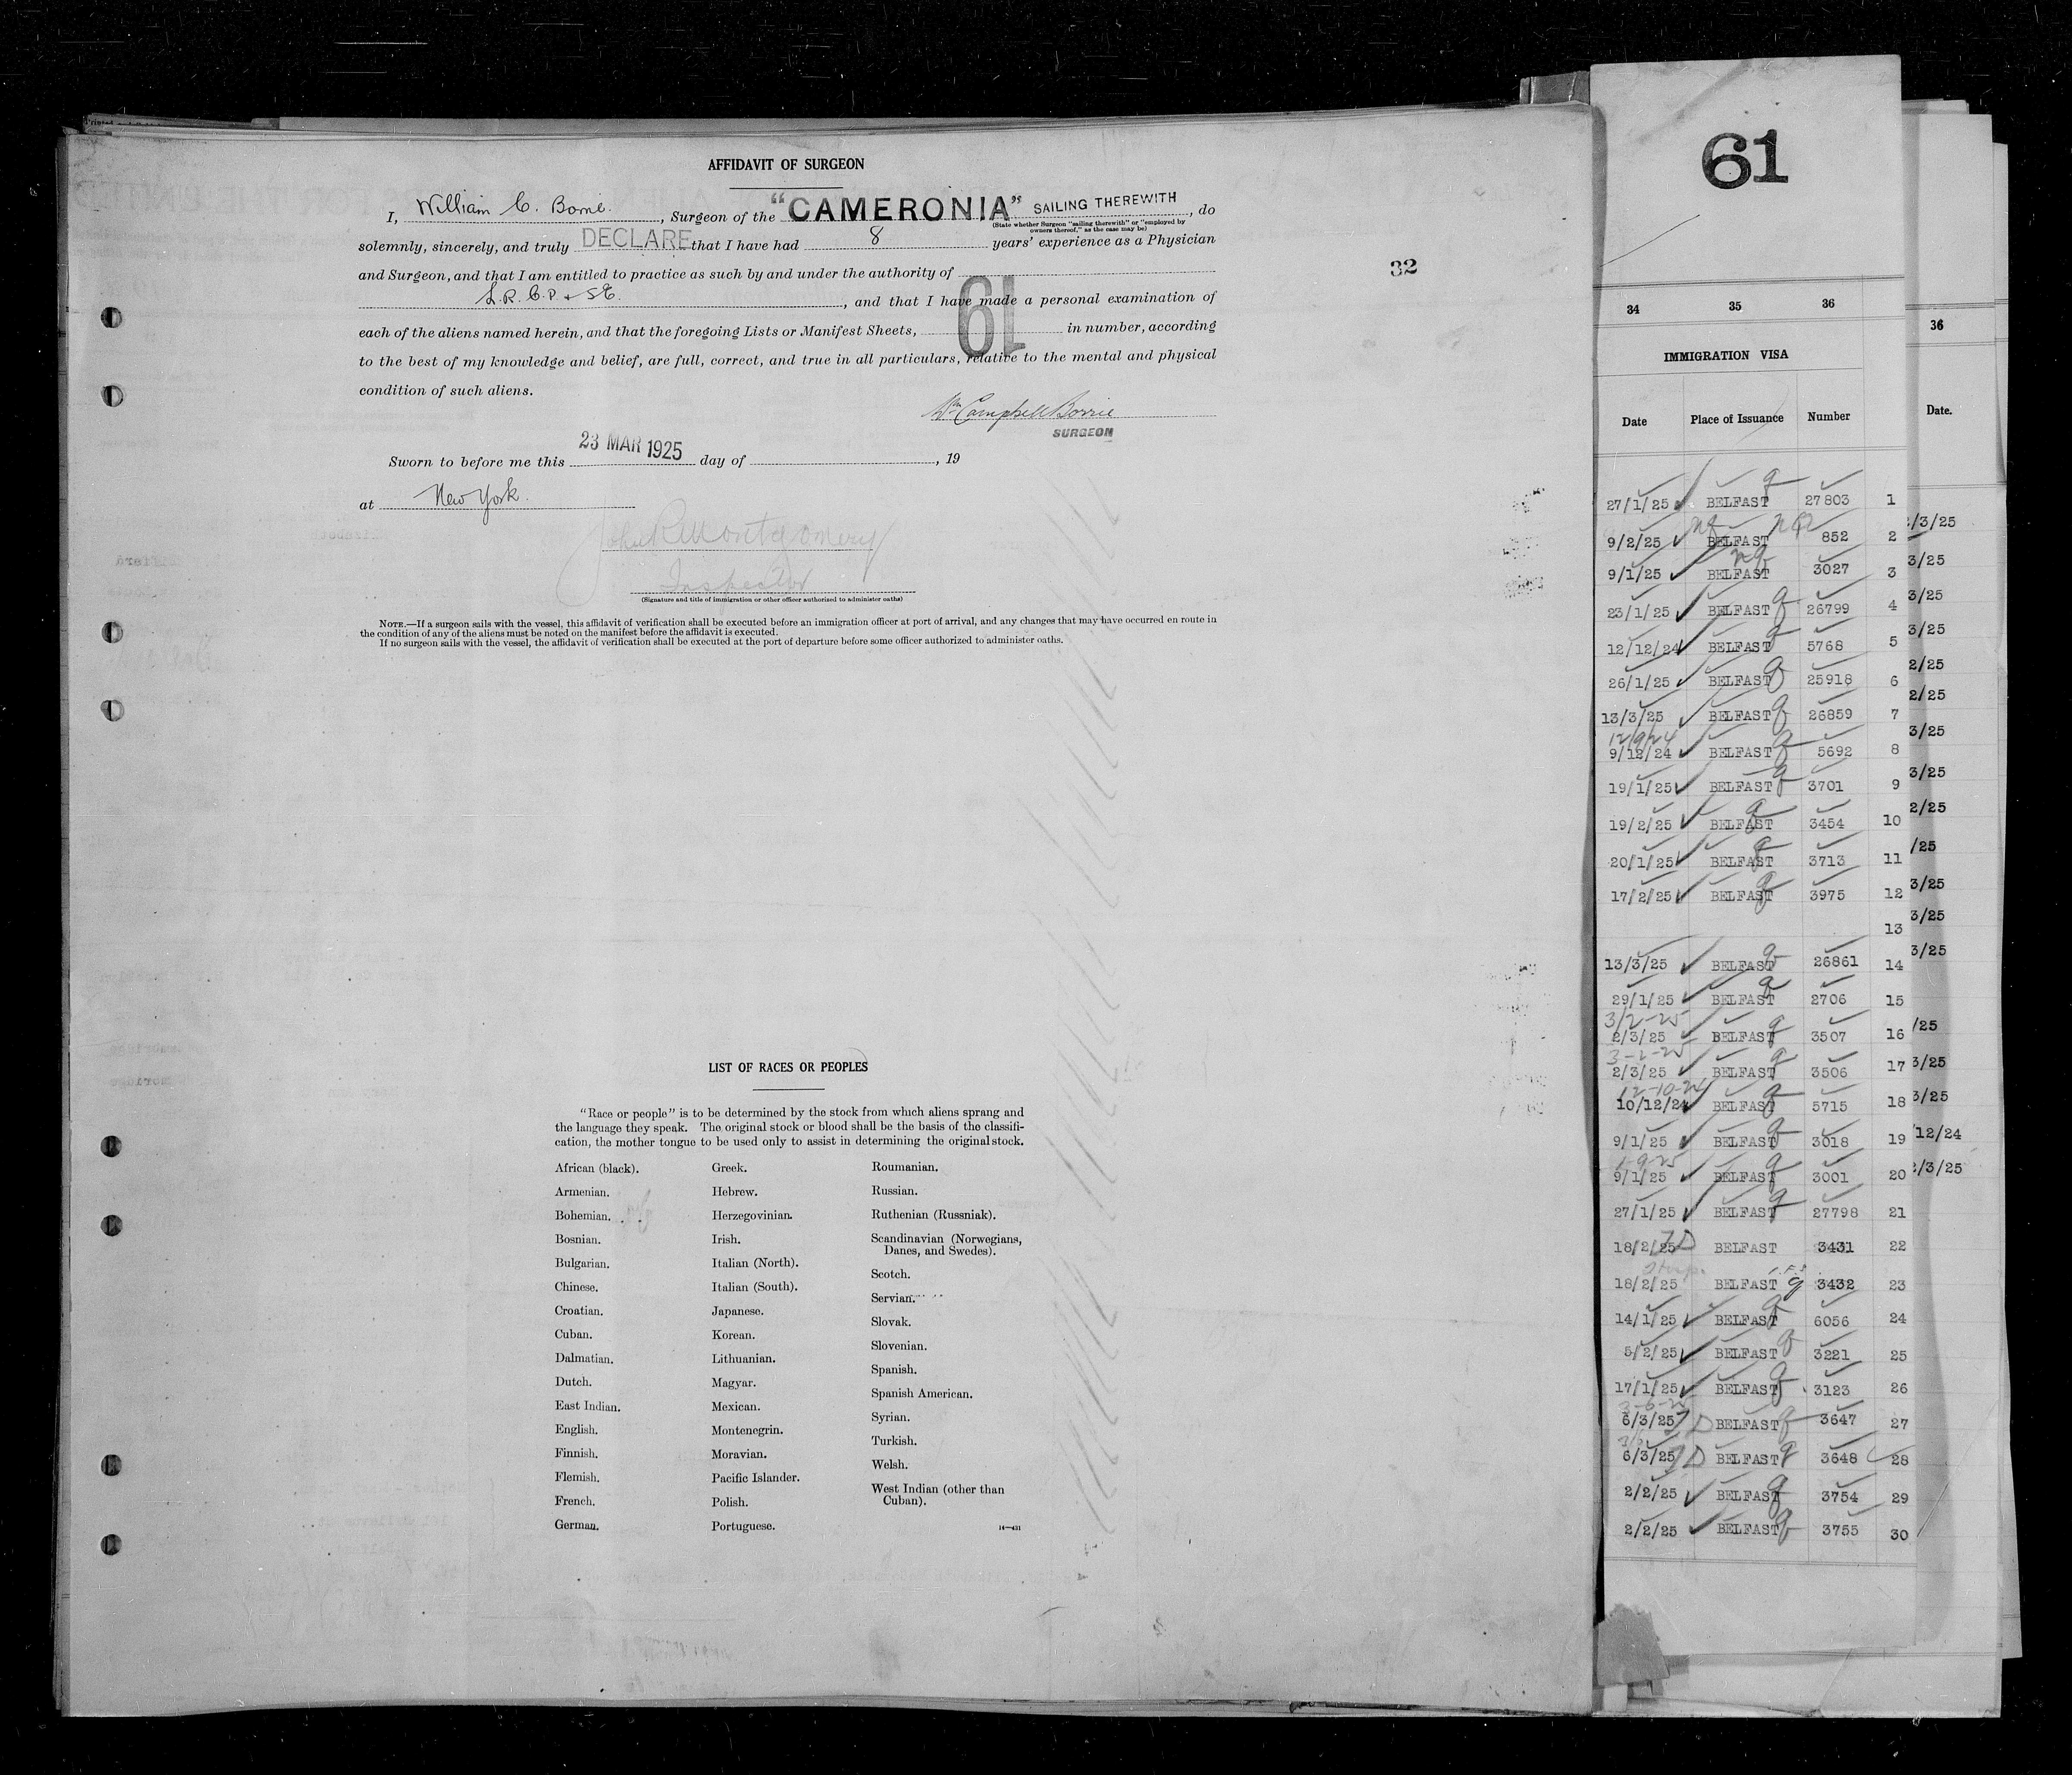 AFFIDAVIT OF SURGEON
I, William C. Borrie, Surgeon of the "CAMERONIA" SAILING THEREWITH, do
(State whether Surgeon "sailing therewith" or "employed by
owners thereof," as the case may be)
solemnly, sincerely, and truly DECLARE that I have had 8 years' experience as a Physician
and Surgeon, and that I am entitled to practice as such by and under the authority of
L.R.C.P. & S.E., and that I have made a personal examination of
each of the aliens named herein, and that the foregoing Lists or Manifest Sheets, 61 in number, according
to the best of my knowledge and belief, are full, correct, and true in all particulars, relative to the mental and physical
condition of such aliens.
Wm Campbell Borrie
SURGEON
Sworn to before me this 23 MAR 1925 day of , 19
at New York.
John R Montgomery
Inspector
(Signature and title of immigration or other officer authorized to administer oaths)
NOTE.—If a surgeon sails with the vessel, this affidavit of verification shall be executed before an immigration officer at port of arrival, and any changes that may have occurred en route in
the condition of any of the aliens must be noted on the manifest before the affidavit is executed.
If no surgeon sails with the vessel, the affidavit of verification shall be executed at the port of departure before some officer authorized to administer oaths.
32
LIST OF RACES OR PEOPLES
"Race or people" is to be determined by the stock from which aliens sprang and
the language they speak. The original stock or blood shall be the basis of the classifi-
cation, the mother tongue to be used only to assist in determining the original stock.
African (black).
Armenian.
Bohemian.
Bosnian.
Bulgarian.
Chinese.
Croatian.
Cuban.
Dalmatian.
Dutch.
East Indian.
English.
Finnish.
Flemish.
French.
German.
Greek.
Hebrew.
Herzegovinian.
Irish.
Italian (North).
Italian (South).
Japanese.
Korean.
Lithuanian.
Magyar.
Mexican.
Montenegrin.
Moravian.
Pacific Islander.
Polish.
Portuguese.
Roumanian.
Russian.
Ruthenian (Russniak).
Scandinavian (Norwegians,
Danes, and Swedes).
Scotch.
Servian.
Slovak.
Slovenian.
Spanish.
Spanish American.
Syrian.
Turkish.
Welsh.
West Indian (other than
Cuban).
14—431
61
34 35 36
IMMIGRATION VISA
Date Place of Issuance Number
27/1/25 BELFAST 27803 1
9/2/25 BELFAST 852 2
9/1/25 BELFAST 3027 3
23/1/25 BELFAST 26799 4
12/12/24 BELFAST 5768 5
26/1/25 BELFAST 25918 6
13/3/25 BELFAST 26859 7
12/9/24
9/12/24 BELFAST 5692 8
19/1/25 BELFAST 3701 9
19/2/25 BELFAST 3454 10
20/1/25 BELFAST 3713 11
17/2/25 BELFAST 3975 12
13
13/3/25 BELFAST 26861 14
29/1/25 BELFAST 2706 15
3/2-25
2/3/25 BELFAST 3507 16
3-2-25
2/3/25 BELFAST 3506 17
12-10-24
10/12/24 BELFAST 5715 18
9/1/25 BELFAST 3018 19
1-9-25
9/1/25 BELFAST 3001 20
27/1/25 BELFAST 27798 21
18/2/25 BELFAST 3431 22
18/2/25 BELFAST 3432 23
14/1/25 BELFAST 6056 24
5/2/25 BELFAST 3221 25
17/1/25 BELFAST 3123 26
3-6-25
6/3/25 BELFAST 3647 27
6/3/25 BELFAST 3648 28
2/2/25 BELFAST 3754 29
2/2/25 BELFAST 3755 30
36
Date.
2/3/25
3/25
3/25
3/25
2/25
2/25
3/25
3/25
2/25
/25
3/25
3/25
3/25
/25
3/25
3/25
/12/24
2/3/25